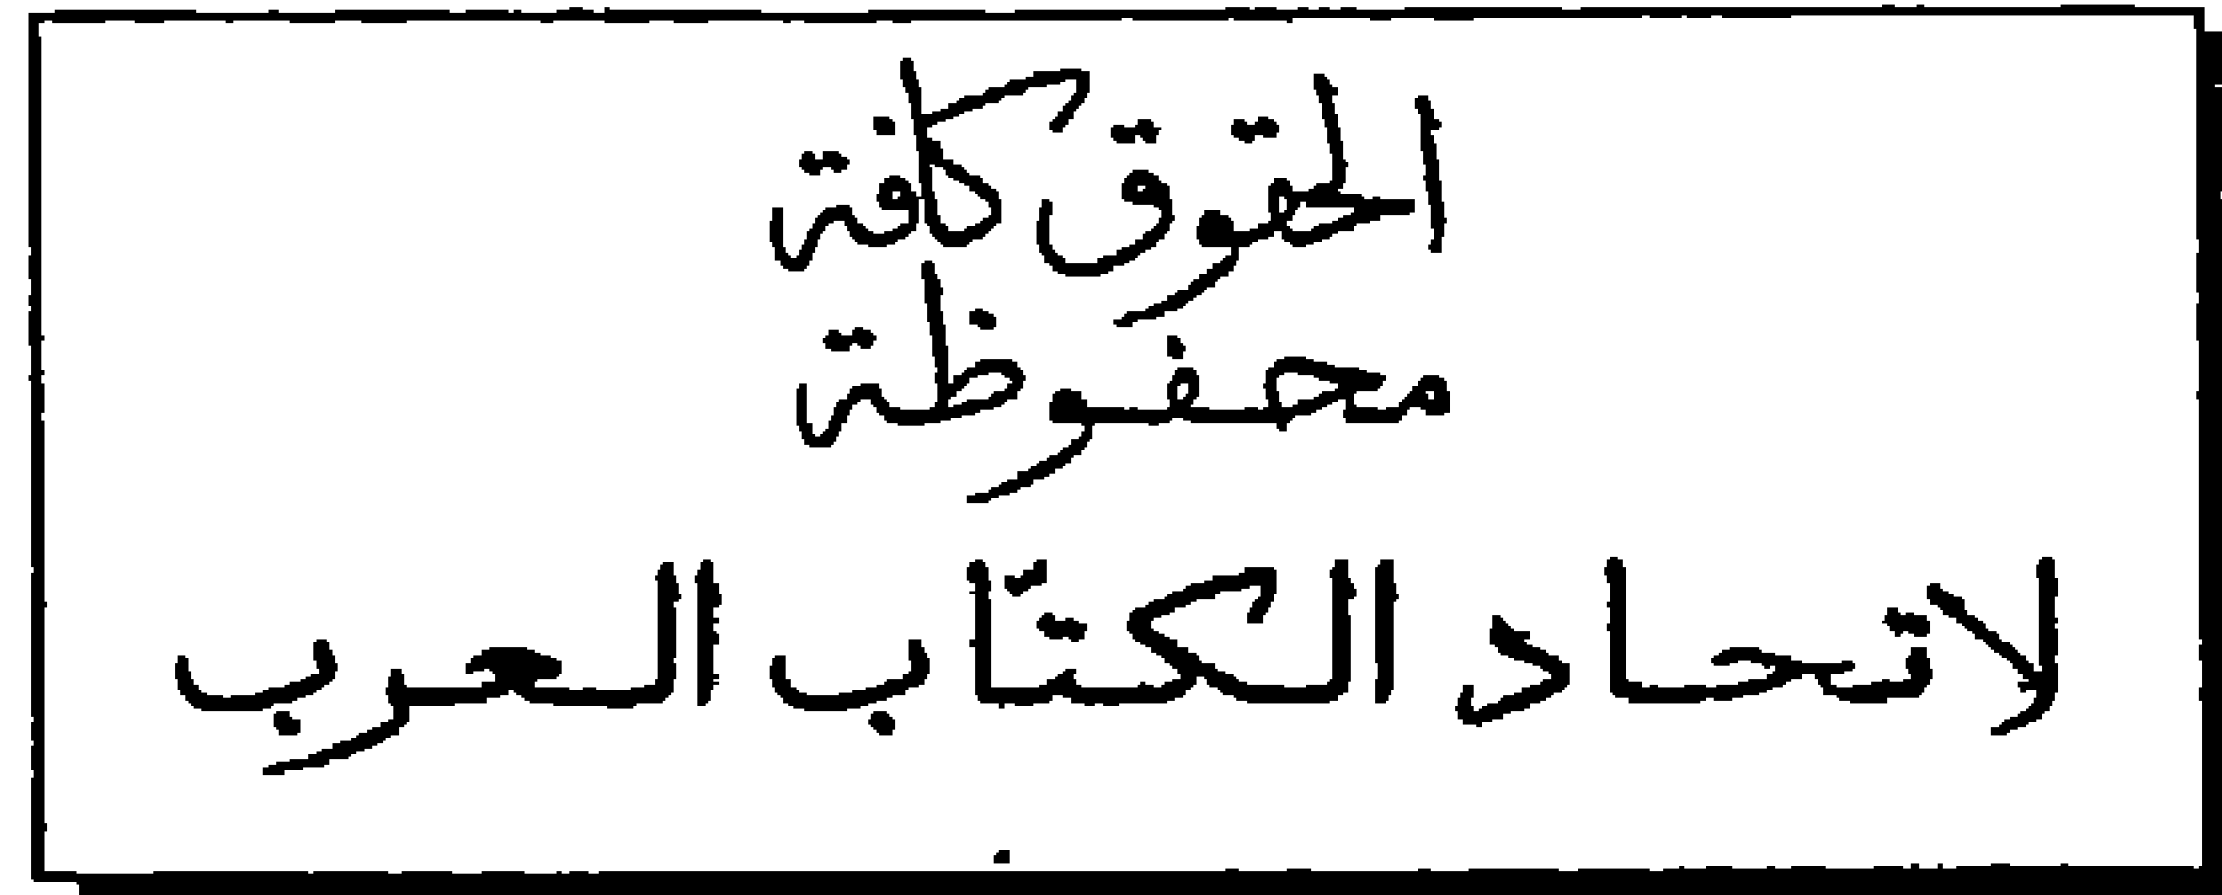 الحقوق كافة
محفوظة
لاتحاد الكتّاب العرب